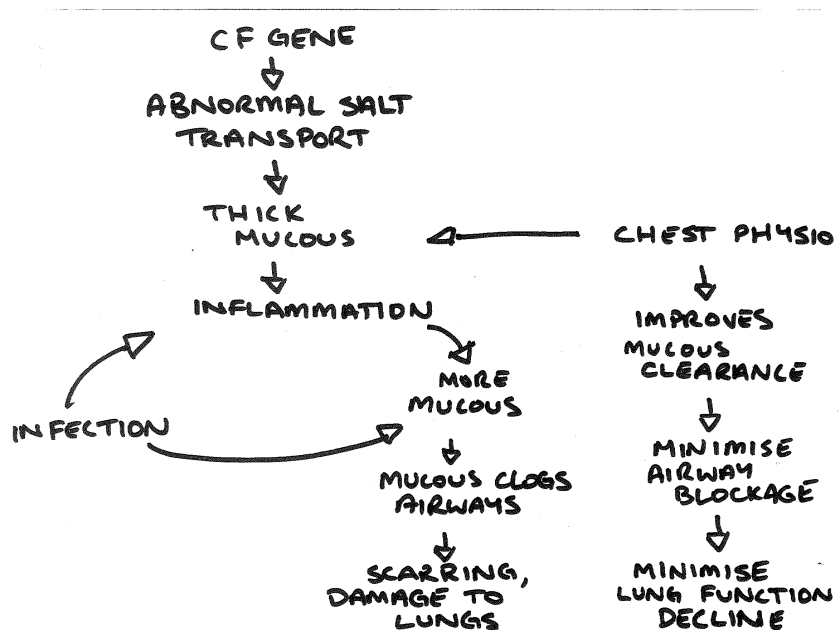 CF GENE
ABNORMAL SALT
TRANSPORT
THICK
MUCOUS
INFLAMMATION
MORE
MUCOUS
INFECTION
MUCOUS CLOGS
AIRWAYS
SCARRING,
DAMAGE TO
LUNGS
CHEST PHYSIO
IMPROVES
MUCOUS
CLEARANCE
MINIMISE
AIRWAY
BLOCKAGE
MINIMISE
LUNG FUNCTION
DECLINE